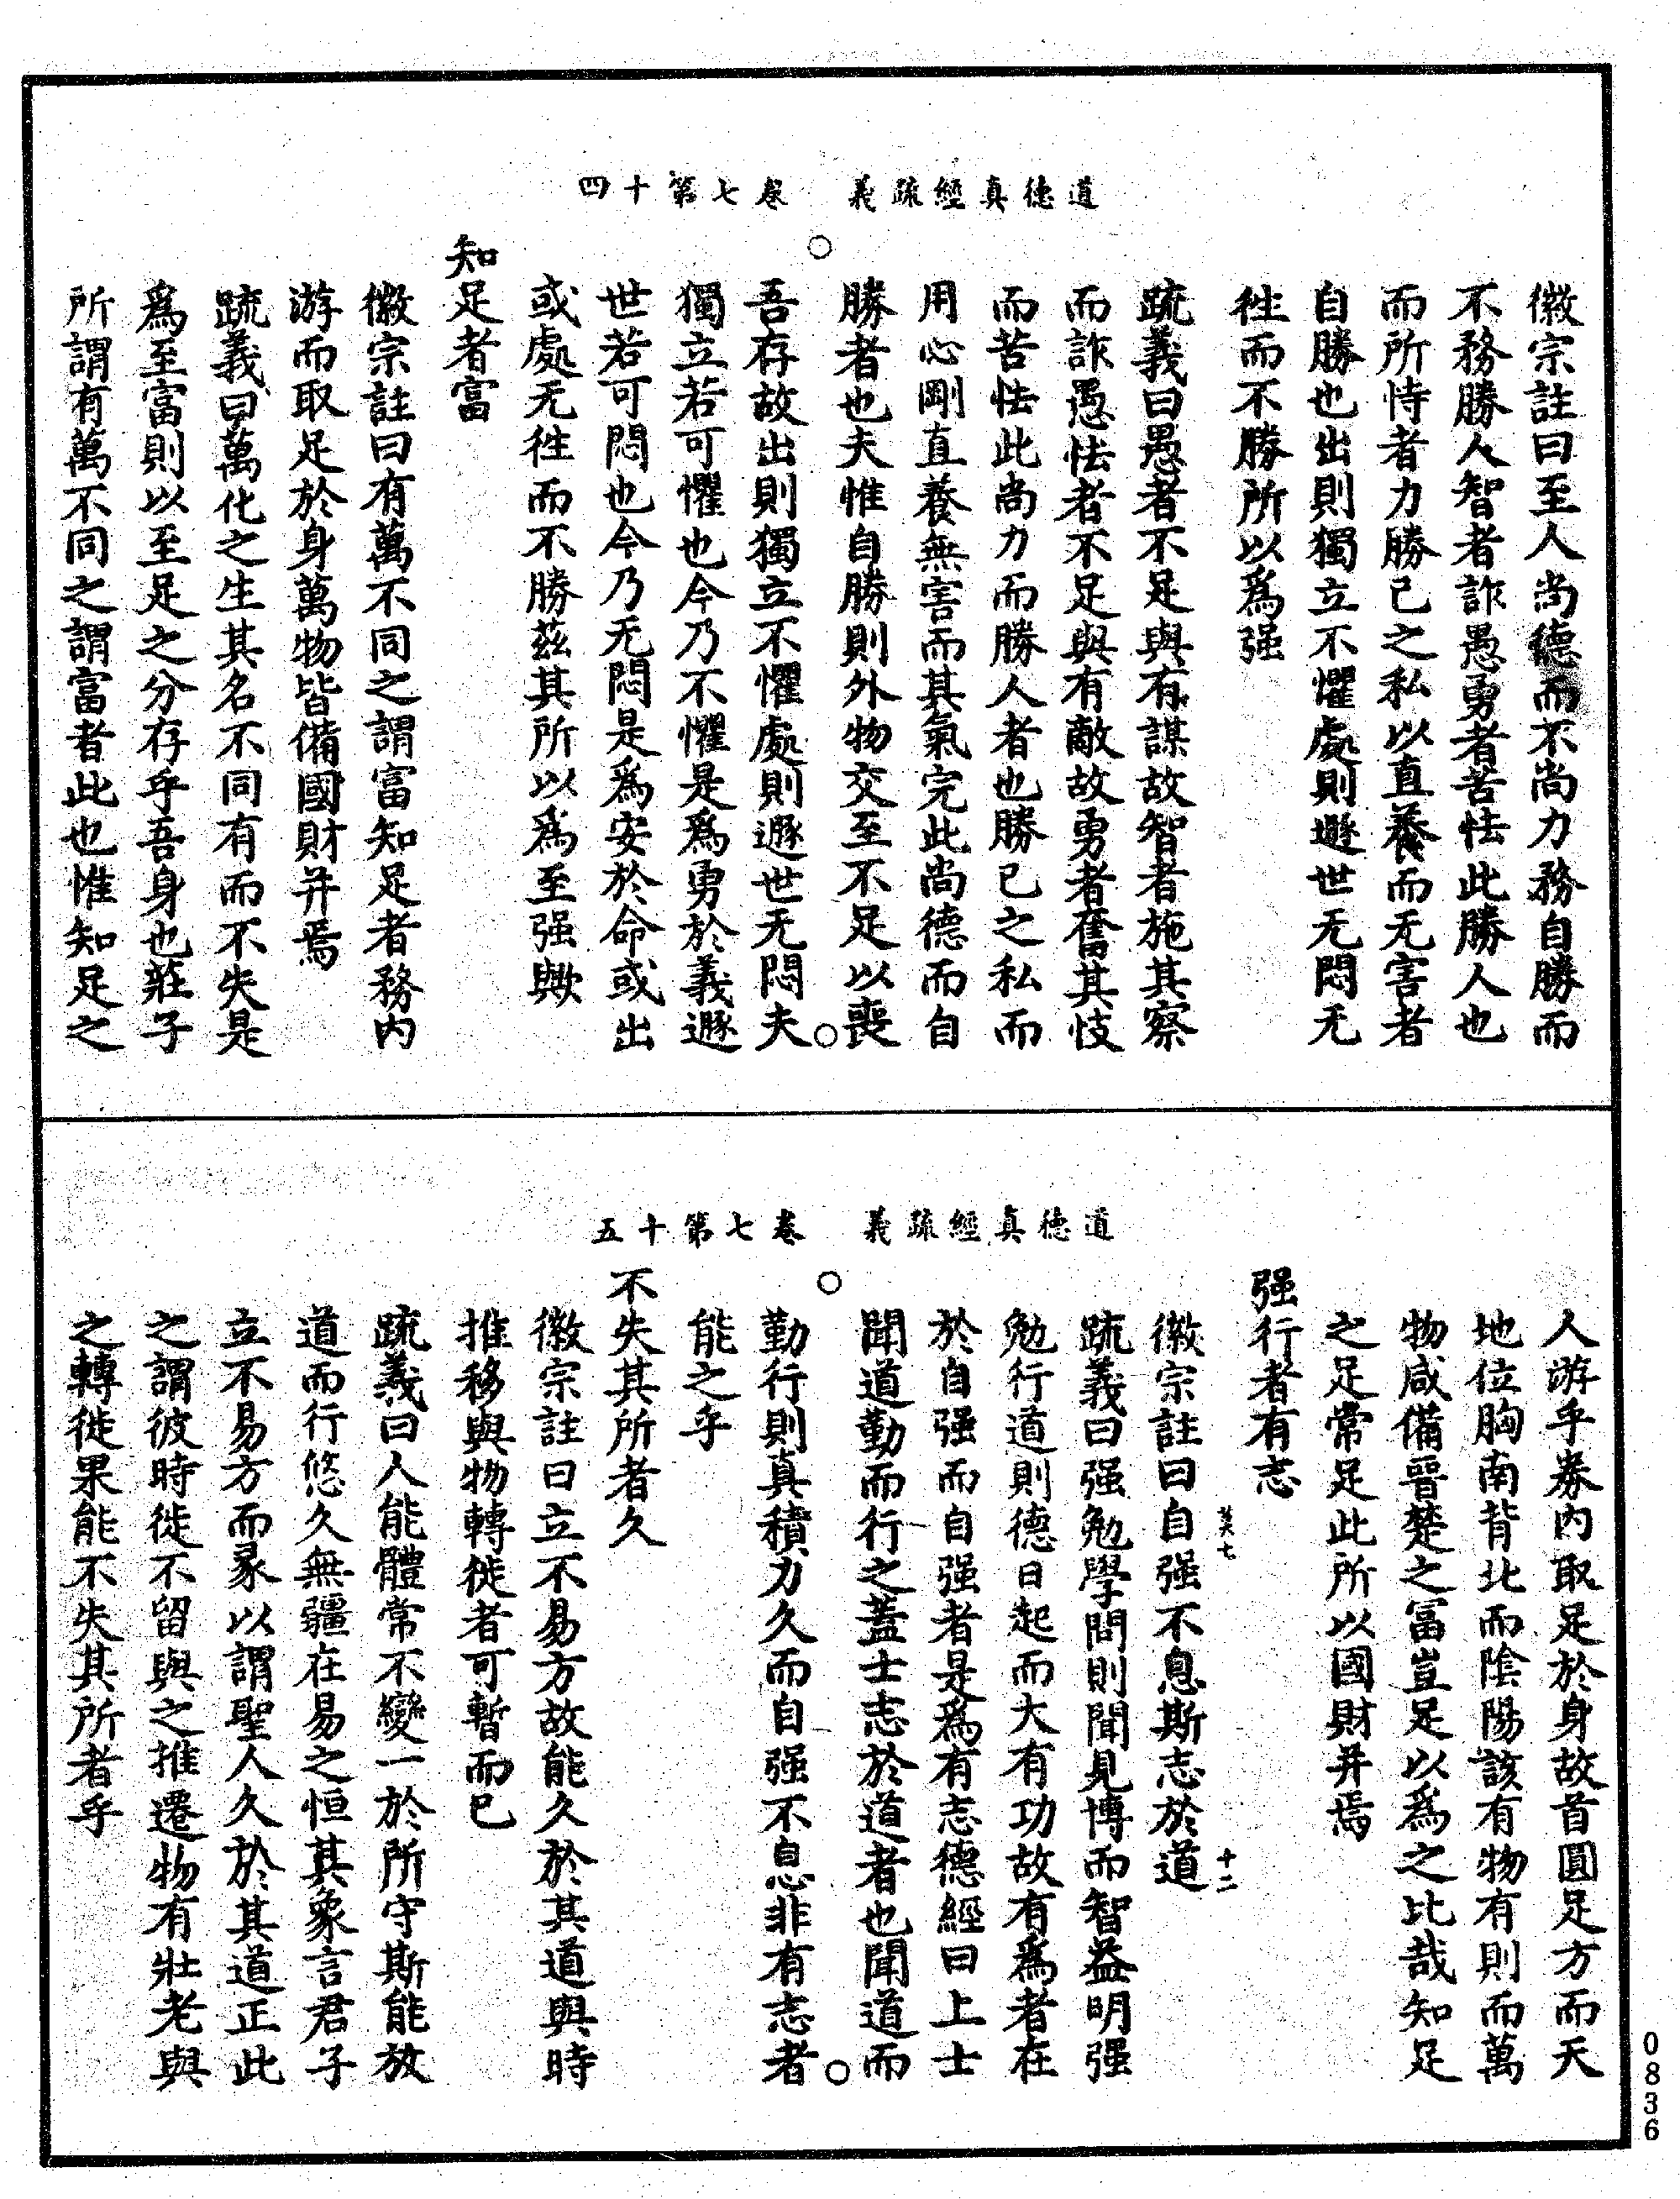 道德真經疏義　卷七第十四
徽宗註曰至人尚德而不尚力務自勝而
不務勝人智者詐愚勇者苦怯此勝人也
而所恃者力勝己之私以直養而无害者
自勝也出則獨立不懼處則遯世无悶无
徃而不勝所以爲强
疏義曰愚者不足與有謀故智者施其察
而詐愚怯者不足與有敵故勇者奮其忮
而苦怯此尚力而勝人者也勝己之私而
用心剛直養無害而其氣完此尚德而自
勝者也夫惟自勝則外物交至不足以喪
吾存故出則獨立不懼處則遯世无悶夫
獨立若可懼也今乃不懼是爲勇於義遯
世若可悶也今乃无悶是爲安於命或出
或處无徃而不勝茲其所以爲至强歟
知足者富
徽宗註曰有萬不同之謂富知足者務內
游而取足於身萬物皆備國財并焉
疏義曰萬化之生其名不同有而不失是
爲至富則以至足之分存乎吾身也莊子
所謂有萬不同之謂富者此也惟知足之
道德真經疏義　卷七第十五
人游乎券內取足於身故首圓足方而天
地位胸南背北而陰陽該有物有則而萬
物咸備晉楚之富豈足以爲之比哉知足
之足常足此所以國財并焉
强行者有志
徽宗註曰自强不息斯志於道
十二
疏義曰强勉學問則聞見博而智益明强
勉行道則德日起而大有功故有爲者在
於自强而自强者是爲有志德經曰上士
聞道勤而行之蓋士志於道者也聞道而
勤行則真積力久而自强不息非有志者
能之乎
不失其所者久
徽宗註曰立不易方故能久於其道與時
推移與物轉徙者可暫而已
疏義曰人能體常不變一於所守斯能放
道而行悠久無疆在易之恒其象言君子
立不易方而彖以謂聖人久於其道正此
之謂彼時徙不留與之推遷物有壯老與
之轉徙果能不失其所者乎
0836